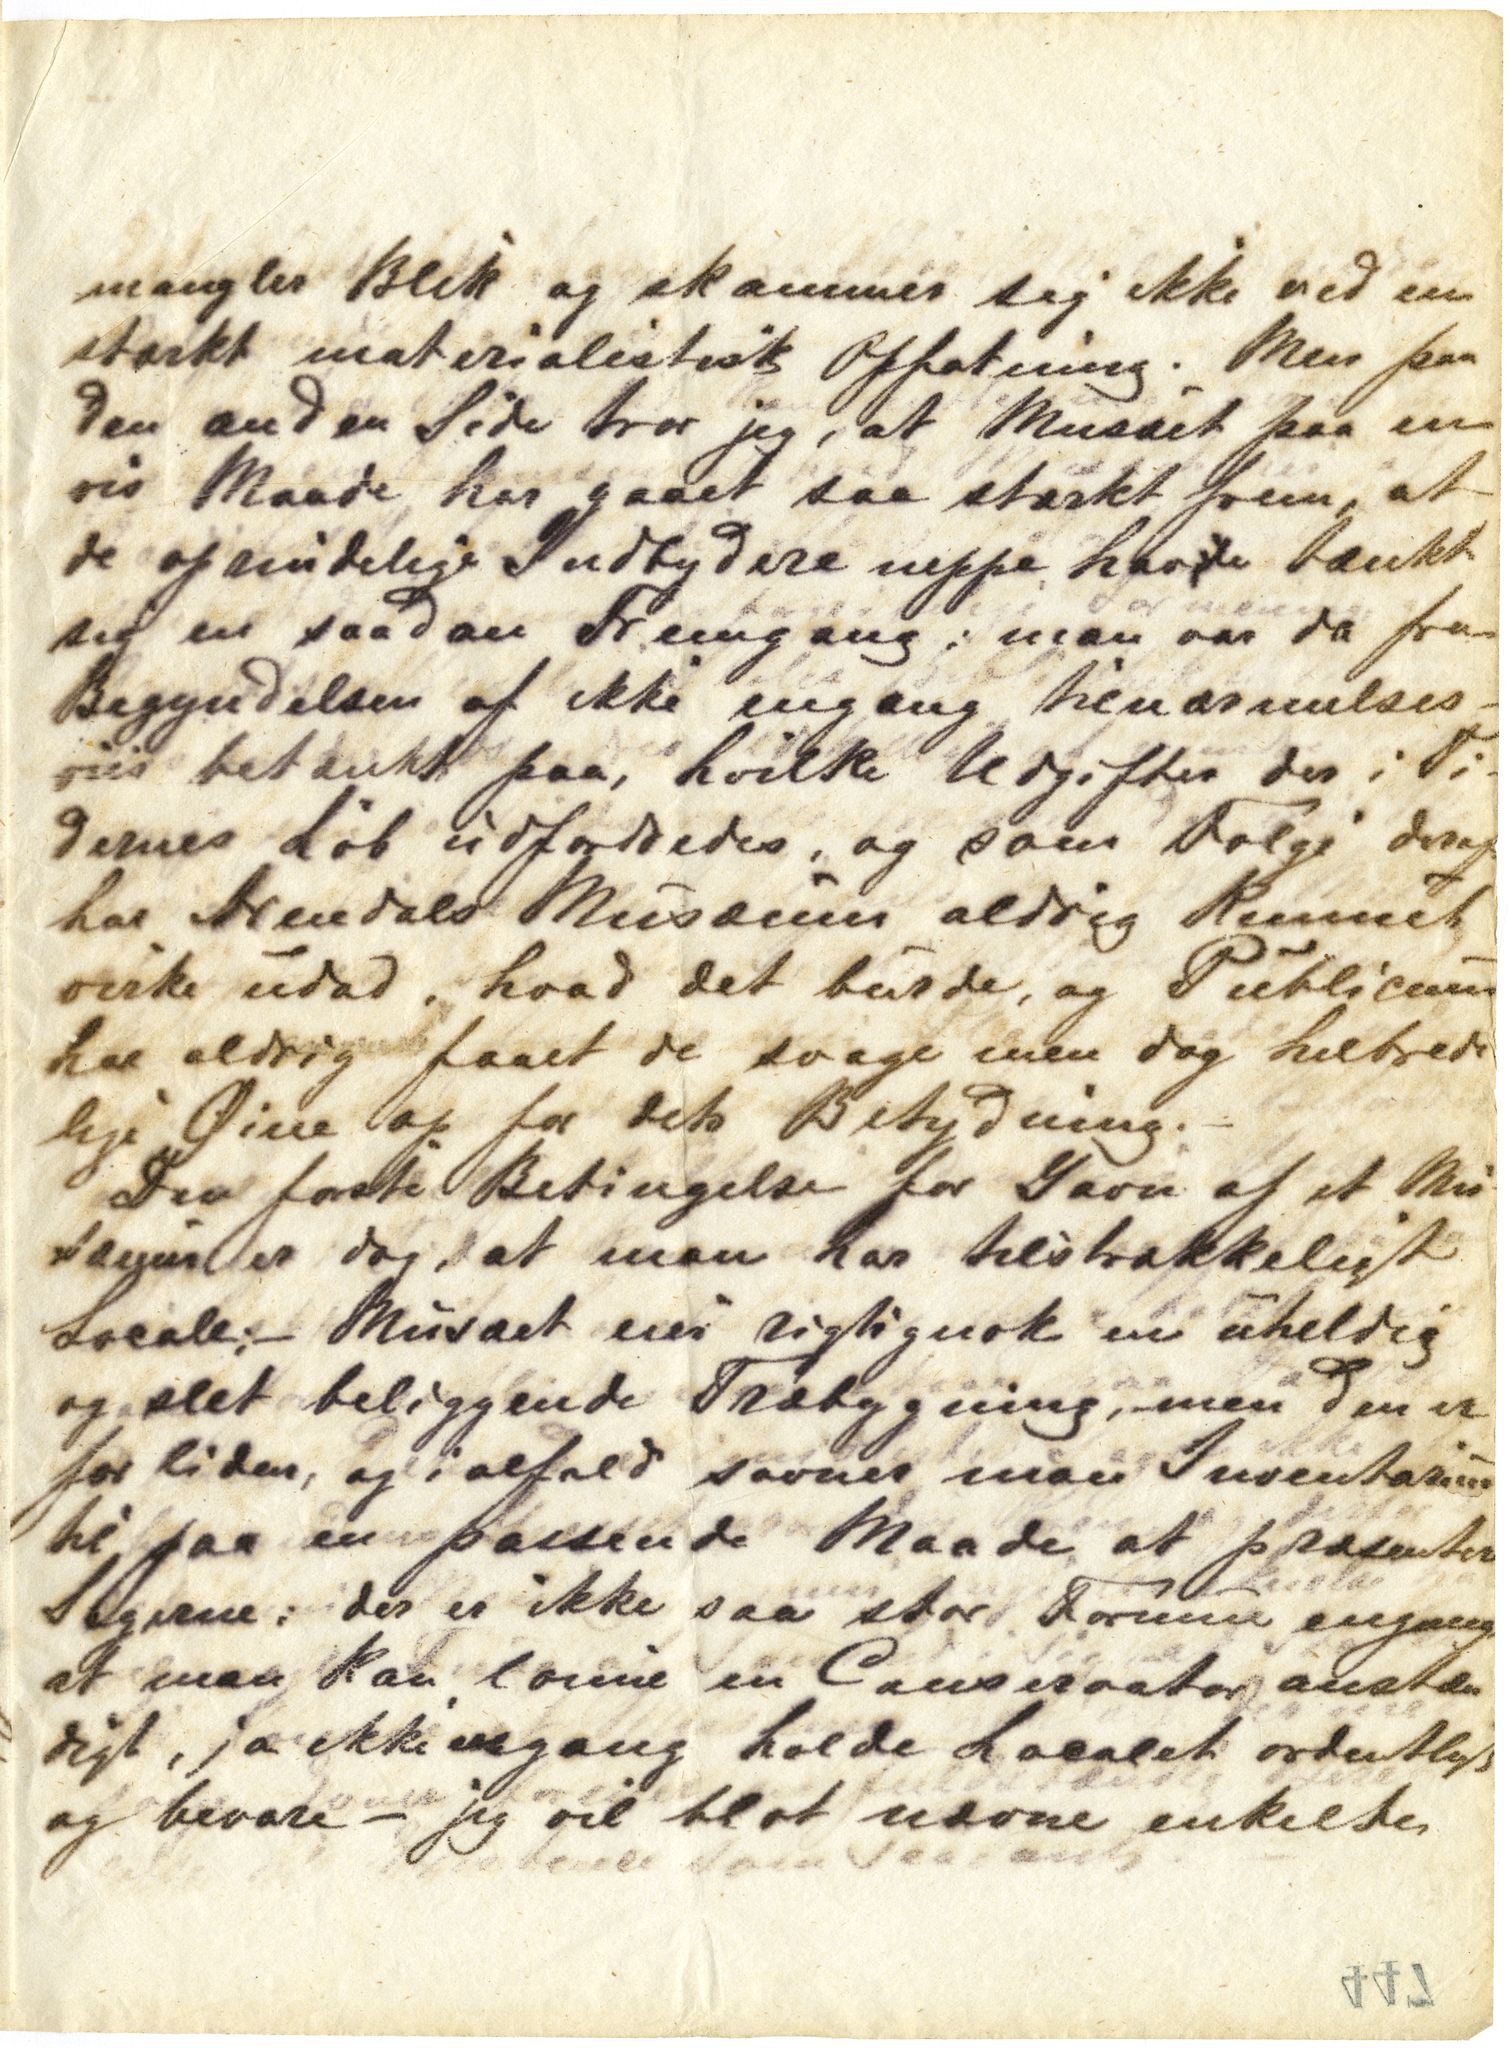 mangler Blik og skammer sig ikke ved en
stærkt materialistisk Opfatning. Men paa
den anden Side tror jeg, at Musæet paa en
vis Maade har gaaet saa stærkt frem, at
de oprindelige Indbydere neppe havde tænkt
sig en saadan Fremgang; man var da fra
Begyndelsen af ikke engang tilnærmelses-
vis betænkt paa, hvilke Udgifter der i Ti-
dernes Løb udfordredes, og som Følge deraf
har Arendals Musæum aldrig kunnet
virke udad, hvad det burde, og Publicum
har aldrig faaet de svage men dog helbrede
lige Øine op for dets Betydning. –
Den første Betingelse for Gavn af et Mu-
sæum er dog, at man har tilstrækkeligt
Locale; – Musæet eier rigtignok en uheldig
og slet beliggende Træbygning, – men den er
for liden, og i alfald savner man Inventarium
til paa en passende Maade at præsentere
Sagerne; der er ikke saa stor Formue engang
at man kan lønne en Conservator anstæn
digt, ja ikke engang holde Localet ordentligt
og bevare – jeg vil blot nævne enkelte
447